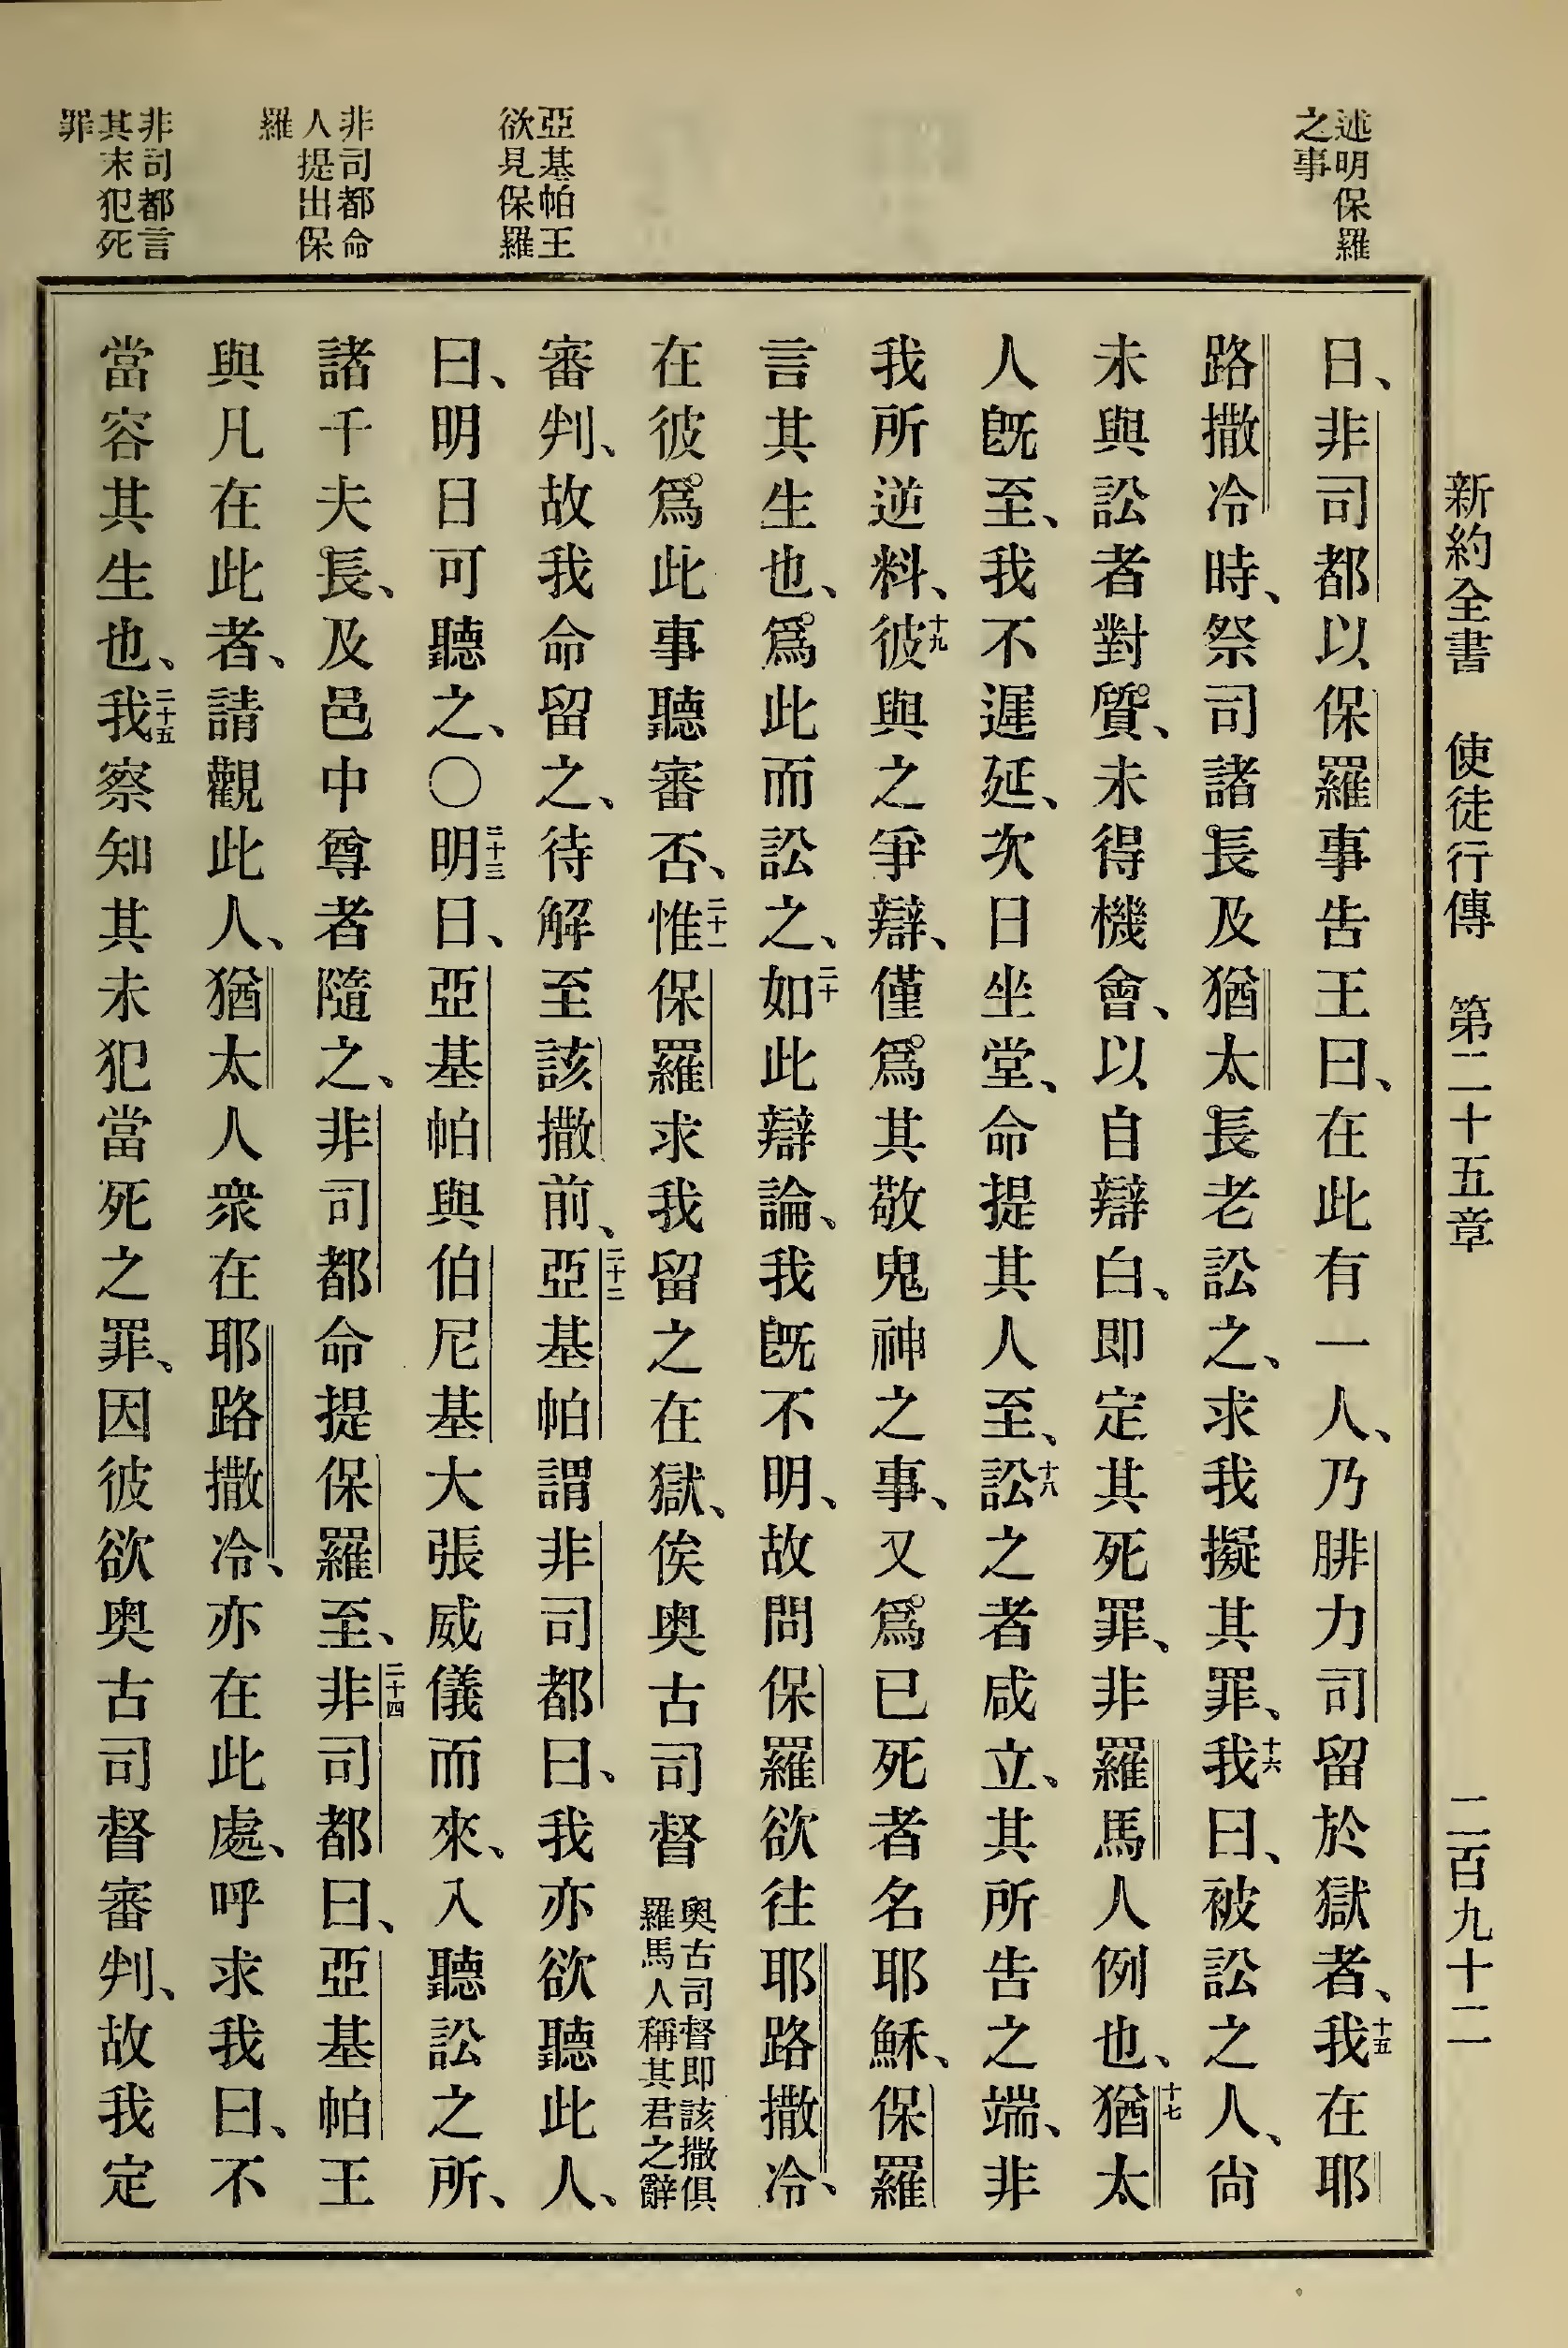 新約全書 使徒行傳 第二十五章 二百九十二
述明保羅
之事
亞基帕王
欲見保羅
非司都命
人提出保
羅
非司都言
其未犯死
罪
日、非司都以保羅事告王曰、在此有一人、乃腓力司留於獄者、十五我在耶
路撒冷時、祭司諸長及猶太長老訟之、求我擬其罪、十六我曰、被訟之人、尙
未與訟者對質、未得機會、以自辯白、卽定其死罪、非羅馬人例也、十七猶太
人旣至、我不遲延、次日坐堂、命提其人至、十八訟之者咸立、其所告之端、非
我所逆料、十九彼與之爭辯、僅爲其敬鬼神之事、又爲已死者名耶穌、保羅
言其生也、爲此而訟之、二十如此辯論、我旣不明、故問保羅欲往耶路撒冷、
在彼爲此事聽審否、二十一惟保羅求我留之在獄、俟奧古司督奧古司督卽該撒俱羅馬人稱其君之辭
審判、故我命留之、待解至該撒前、二十二亞基帕謂非司都曰、我亦欲聽此人、
曰、明日可聽之、〇二十三明日、亞基帕與伯尼基大張威儀而來、入聽訟之所、
諸千夫長、及邑中尊者隨之、非司都命提保羅至、二十四非司都曰、亞基帕王
與凡在此者、請觀此人、猶太人衆在耶路撒冷、亦在此處、呼求我曰、不
當容其生也、二十五我察知其未犯當死之罪、因彼欲奧古司督審判、故我定